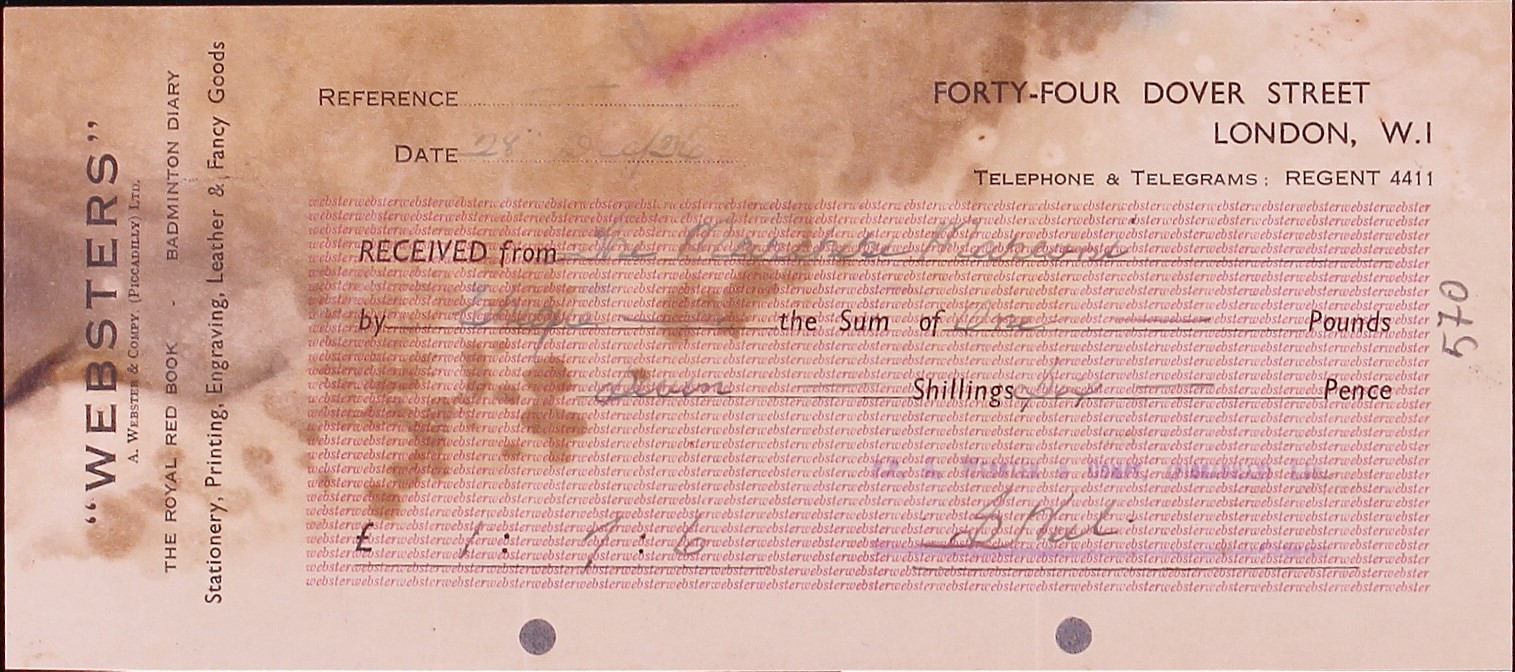 "WEBSTERS"
A. WEBSTER & COMPY. (PICCADILLY) LTD.
THE ROYAL RED BOOK - BADMINTON DIARY
Stationery, Printing, Engraving, Leather & Fancy Goods
REFERENCE
DATE 28
FORTY-FOUR DOVER STREET
LONDON, W.1
TELEPHONE & TELEGRAMS: REGENT 4411
RECEIVED from The
by Cheque the Sum of One Pounds
Seven Shillings Six Pence
P.P. A. WEBSTER & COMPY. (PICCADILLY) LTD.
£ 1 : 7 : 6
570